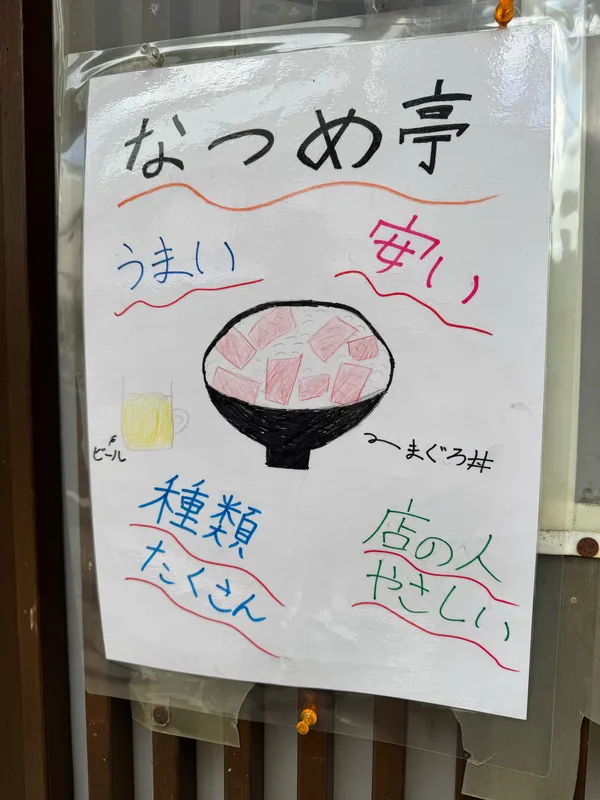 なつめ亭
うまい
安い
ビール
まぐろ丼
種類
たくさん
店の人
やさしい